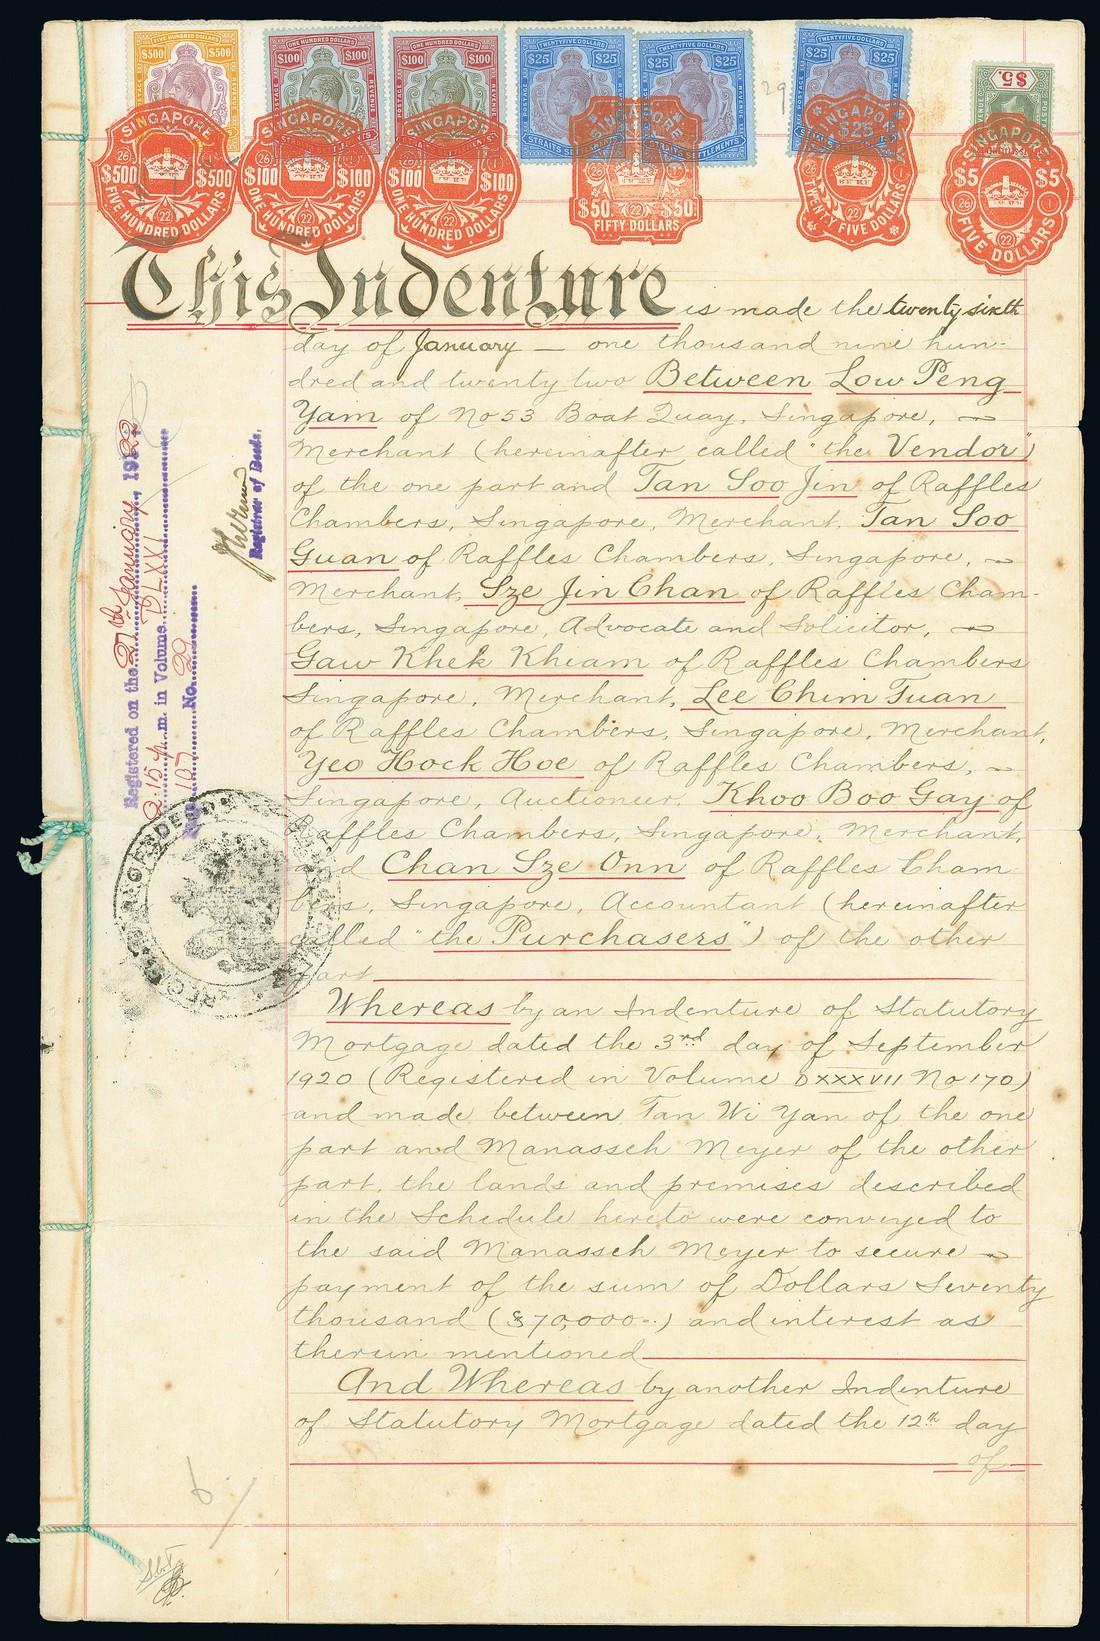 $500 ONE HUNDRED DOLLARS ONE HUNDRED DOLLARS TWENTYFIVE DOLLARS TWENTYFIVE DOLLARS TWENTYFIVE DOLLARS
$500 $500 $100 $100 $100 $100 $25 $25 $25 $25 $25 $25 $5.
SINGAPORE SINGAPORE SINGAPORE SINGAPORE SINGAPORE SINGAPORE
STRAITS SETTLEMENTS
$500 $500 $100 $100 $100 $100 $50. $50. $25 $5 $5
26 22 26 22 22 26 22 26 22 26 1 22
FIVE HUNDRED DOLLARS ONE HUNDRED DOLLARS ONE HUNDRED DOLLARS FIFTY DOLLARS TWENTY FIVE DOLLARS FIVE DOLLARS
29
This Indenture is made the twenty sixth
day of January — one thousand nine hun-
dred and twenty two Between Low Peng
Yam of No 53 Boat Quay, Singapore,
Merchant (hereinafter called "the Vendor")
of the one part and Tan Soo Jin of Raffles
Chambers, Singapore, Merchant, Tan Soo
Guan of Raffles Chambers, Singapore,
Merchant, Sze Jin Chan of Raffles Cham-
bers, Singapore, Advocate and Solicitor,
Gaw Khek Khiam of Raffles Chambers
Singapore, Merchant, Lee Chim Tuan
of Raffles Chambers, Singapore, Merchant,
Yeo Hock Hoe of Raffles Chambers,
Singapore, Auctioneer, Khoo Boo Gay of
Raffles Chambers, Singapore, Merchant,
and Chan Sze Onn of Raffles Cham
bers, Singapore, Accountant (hereinafter
called "the Purchasers") of the other
part
Whereas by an Indenture of Statutory
Mortgage dated the 3rd day of September
1920 (Registered in Volume DXXXVII No 170)
and made between Tan Wi Yan of the one
part and Manasseh Meyer of the other
part, the lands and premises described
in the Schedule hereto were conveyed to
the said Manasseh Meyer to secure
payment of the sum of Dollars Seventy
thousand ($70,000-.) and interest as
therein mentioned
And Whereas by another Indenture
of Statutory Mortgage dated the 12th day
of
Registered on the 27th January, 1922
2.15 p.m. in Volume DLXXI
107 No. 29
Registrar of Deeds.